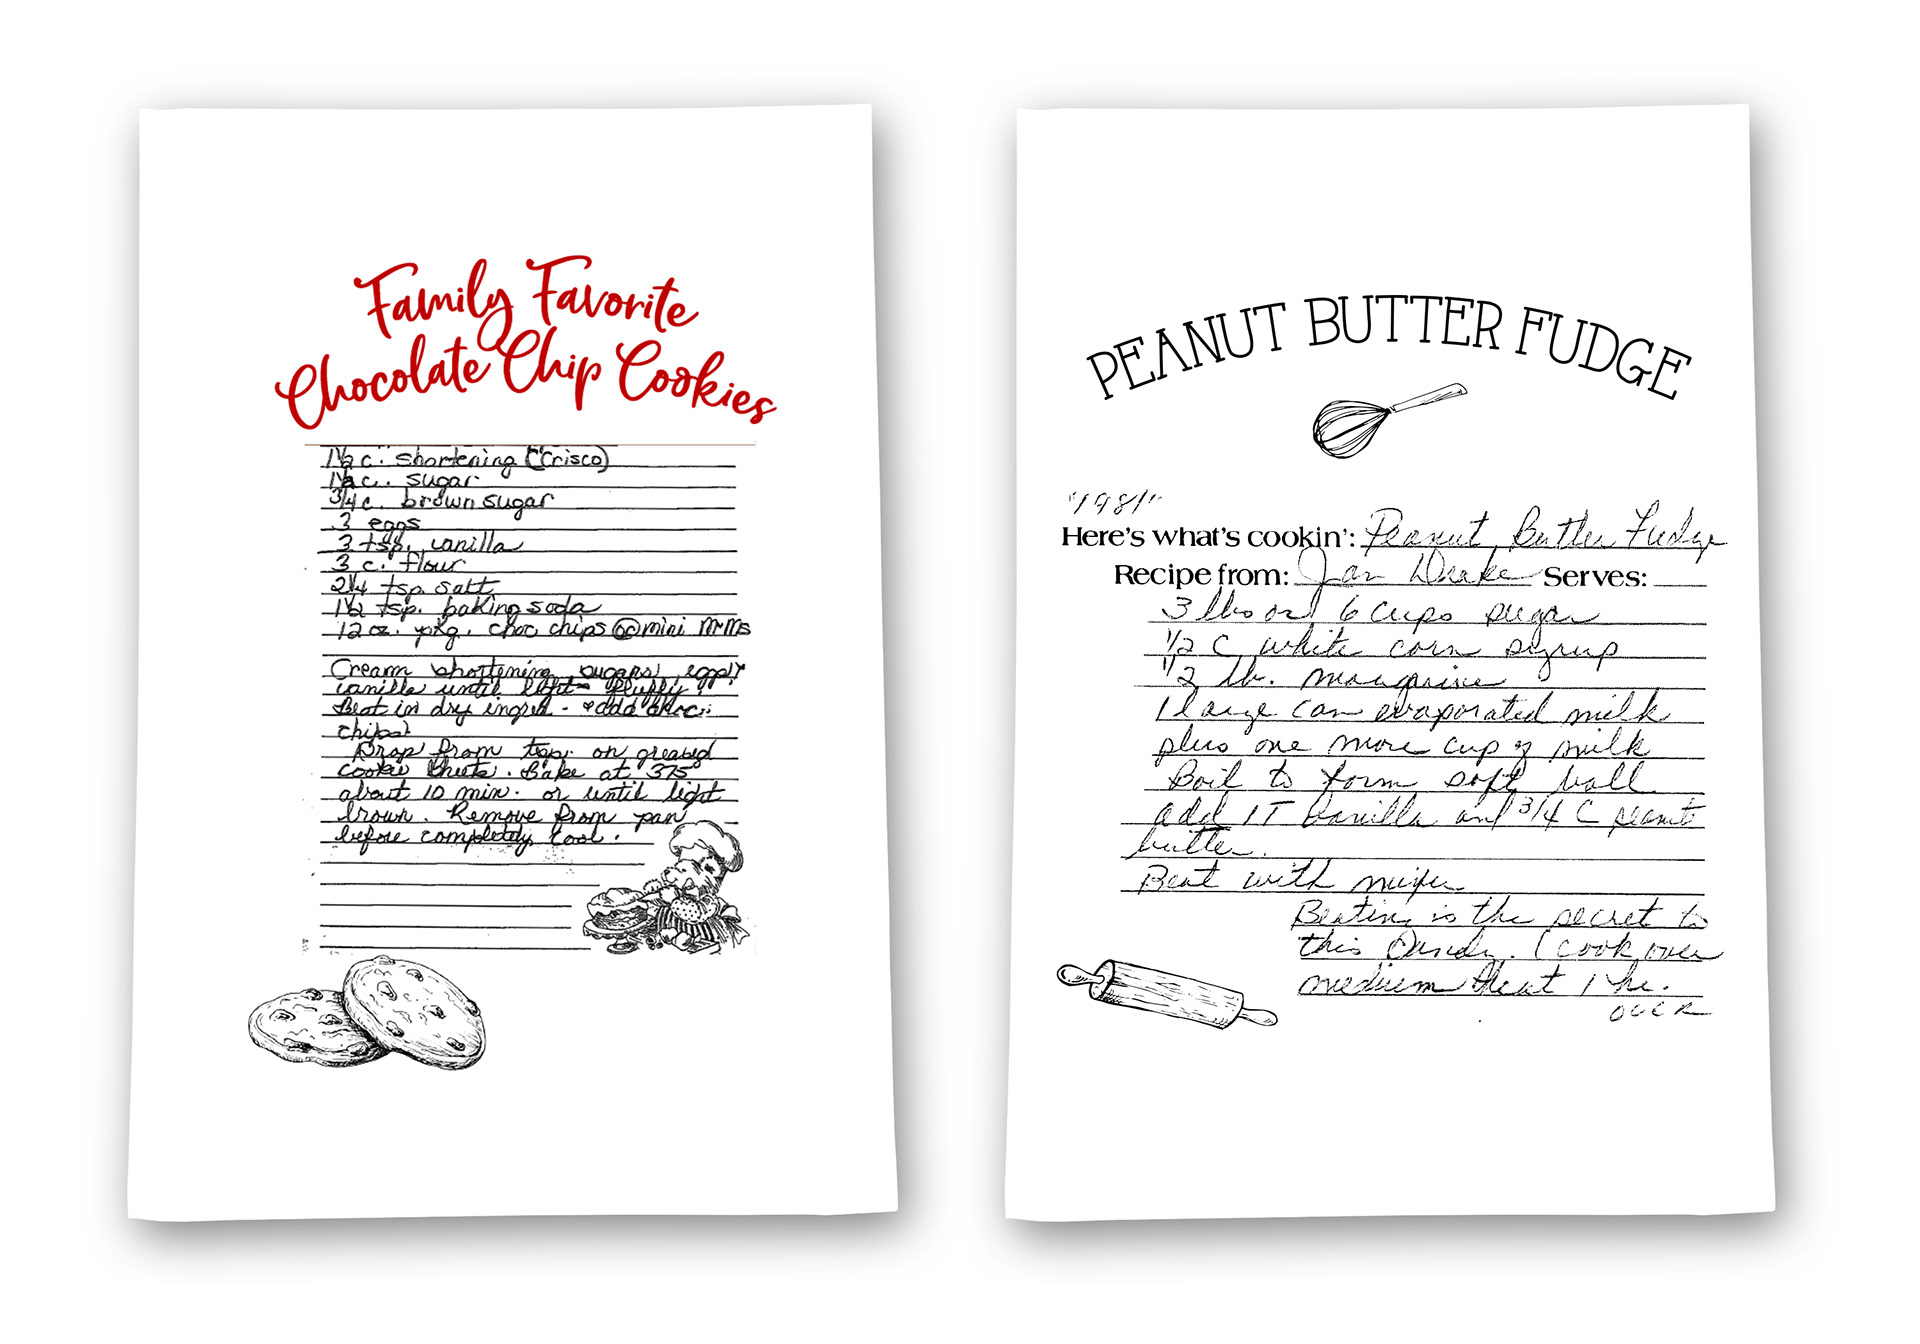 Family Favorite
Chocolate Chip Cookies
1 1/2 c. shortening (Crisco)
1 1/2 c. sugar
3/4 c. brown sugar
3 eggs
3 tsp. vanilla
3 c. flour
2 1/4 tsp salt
1 1/2 tsp. baking soda
12 oz. pkg. choc chips or mini M+Ms
Cream shortening, sugars, eggs +
vanilla until light + fluffy.
Beat in dry ingred. + add choc.
chips.
Drop from tsp. on greased
cookie sheets. Bake at 375°
about 10 min. or until light
brown. Remove from pan
before completely cool.
PEANUT BUTTER FUDGE
"1981"
Here's what's cookin': Peanut Butter Fudge
Recipe from: Jan Drake Serves:
3 lbs or 6 cups sugar
1/2 C white corn syrup
1/2 lb. margarine
1 large can evaporated milk
plus one more cup of milk
Boil to form soft ball
add 1T vanilla and 3/4 C peanut
butter.
Beat with mixer
Beating is the secret to
this Candy. (cook over
medium heat 1 hr.
OVER